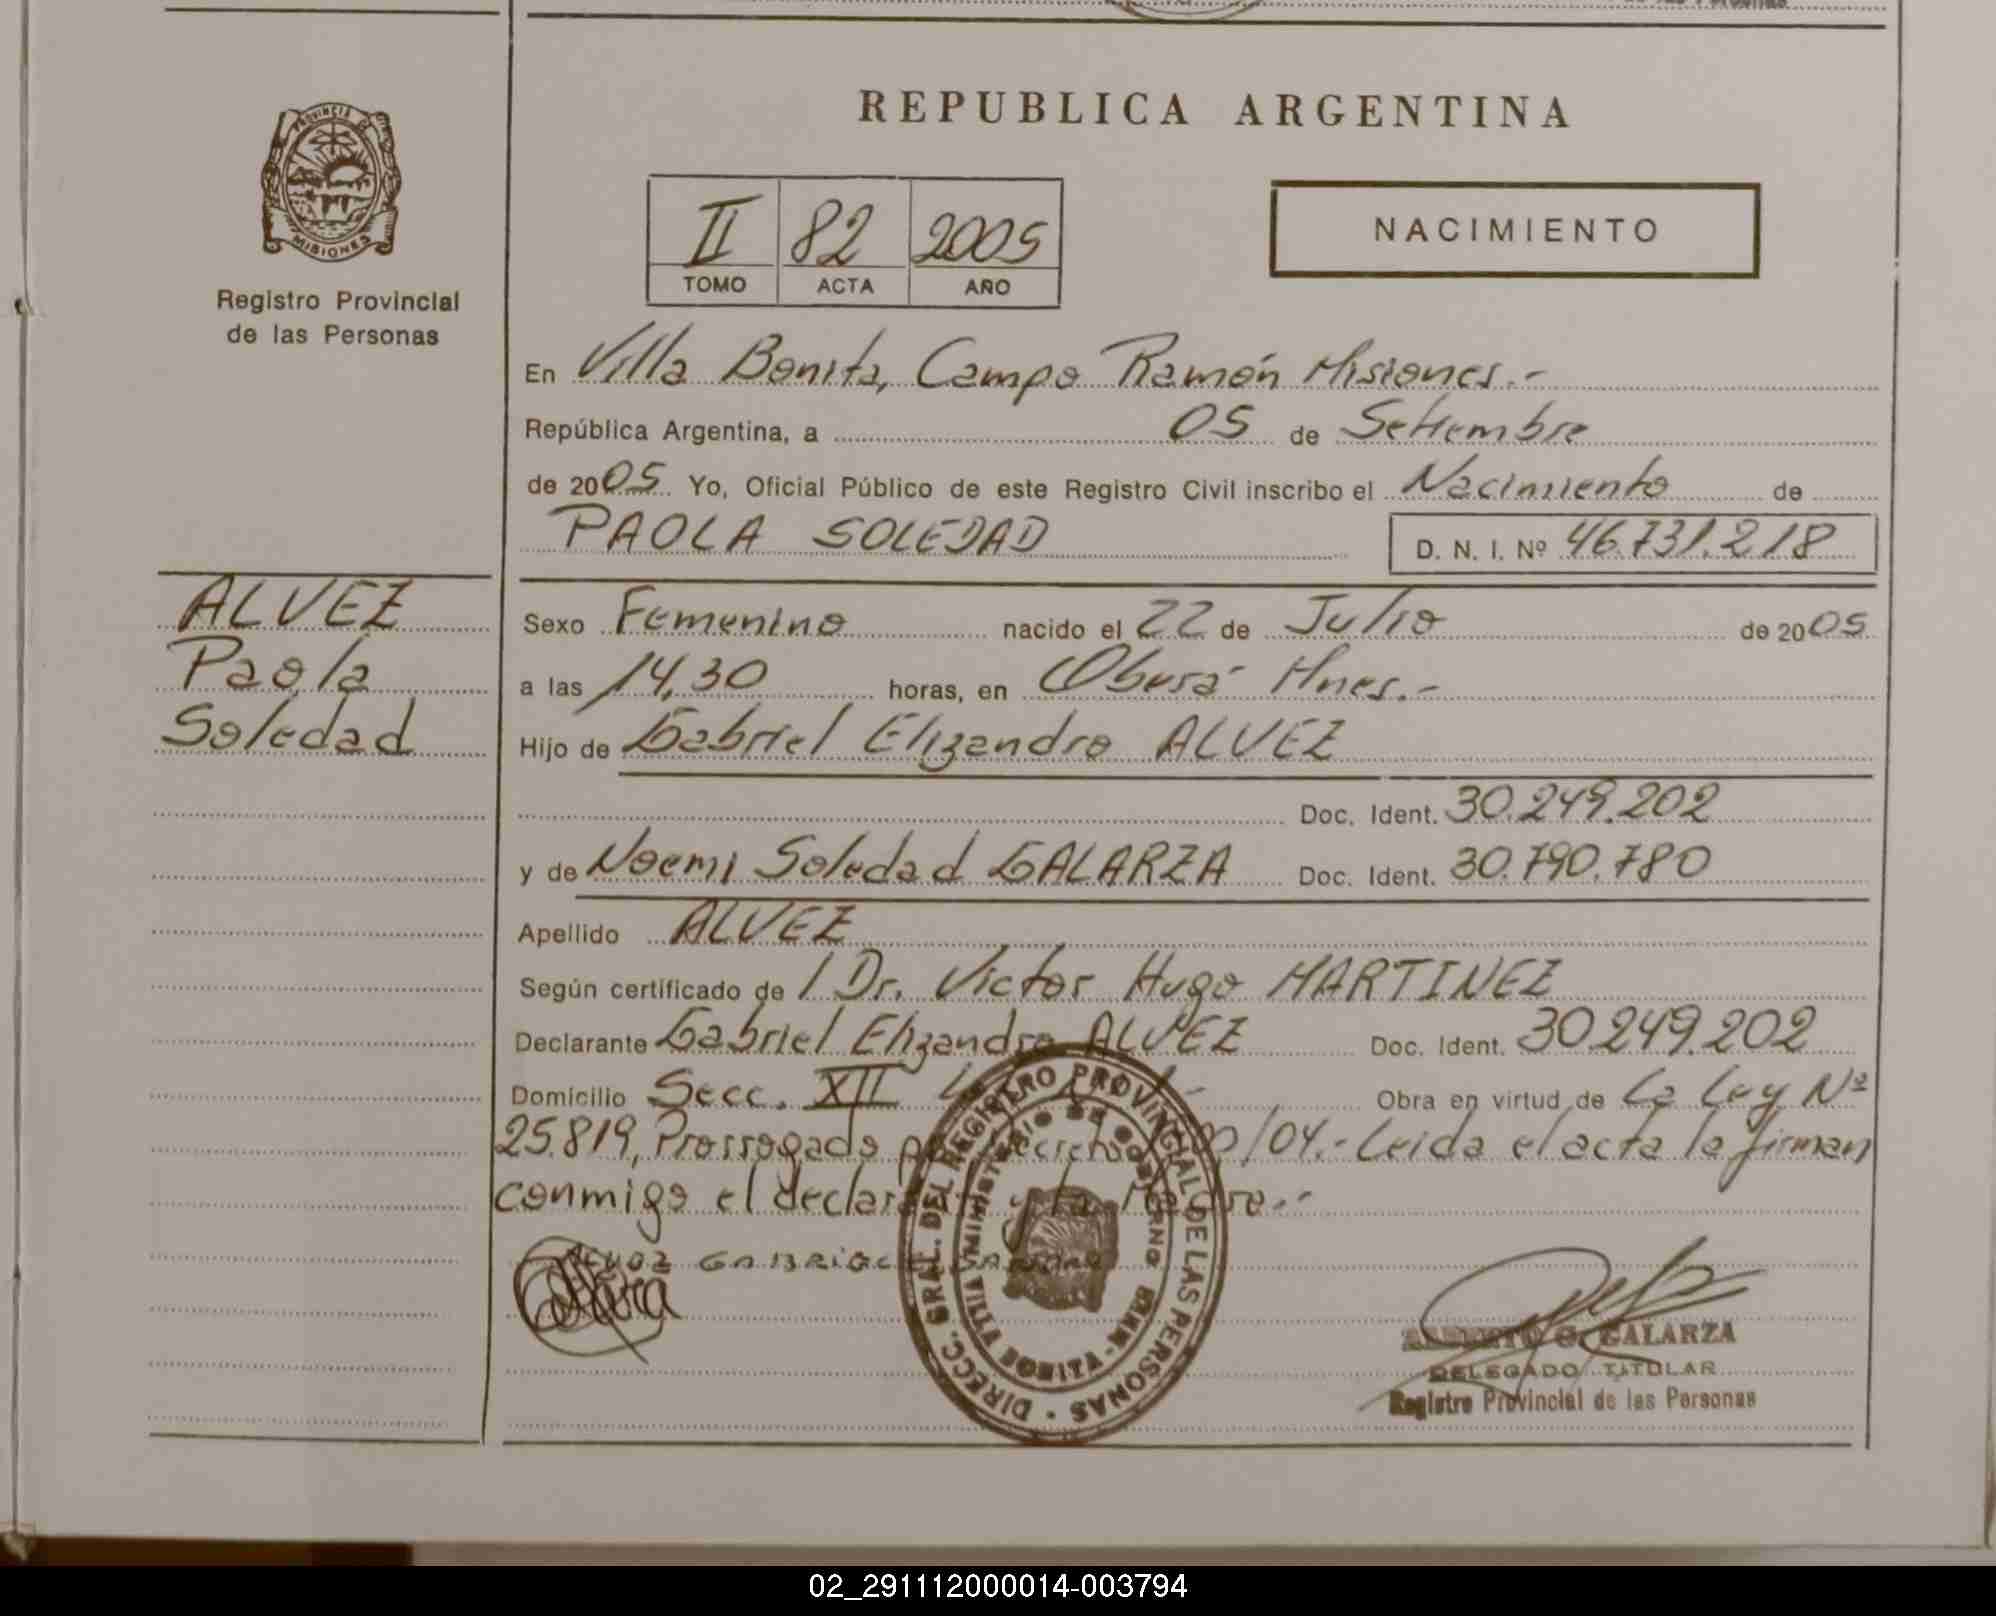 REPUBLICA ARGENTINA
PROVINCIA DE
MISIONES
Registro Provincial
de las Personas
II 82 2005
TOMO ACTA AÑO
NACIMIENTO
En Villa Bonita, Campo Ramón Misiones.-
República Argentina, a 05 de Setiembre
de 2005 Yo, Oficial Público de este Registro Civil inscribo el Nacimiento de
PAOLA SOLEDAD D. N. I. Nº 46.731.218
ALVEZ
Paola
Soledad
Sexo Femenino nacido el 22 de Julio de 2005
a las 14,30 horas, en Oberá Mnes.-
Hijo de Gabriel Elizandro ALVEZ
Doc. Ident. 30.249.202
y de Noemi Soledad GALARZA Doc. Ident. 30.790.780
Apellido ALVEZ
Según certificado de / Dr. Victor Hugo MARTINEZ
Declarante Gabriel Elizandro ALVEZ Doc. Ident. 30249.202
Domicilio Secc. XII Obra en virtud de La Ley Nº
25.819, Prorrogado Decreto /04.- Leida el acta la firman
conmigo el declarante y la Madre.-
DIRECC. GRAL. DEL REGISTRO PROVINCIAL DE LAS PERSONAS
MINISTERIO DE GOBIERNO
VILLA BONITA
GALARZA
DELEGADO TITULAR
Registro Provincial de las Personas
02_291112000014-003794